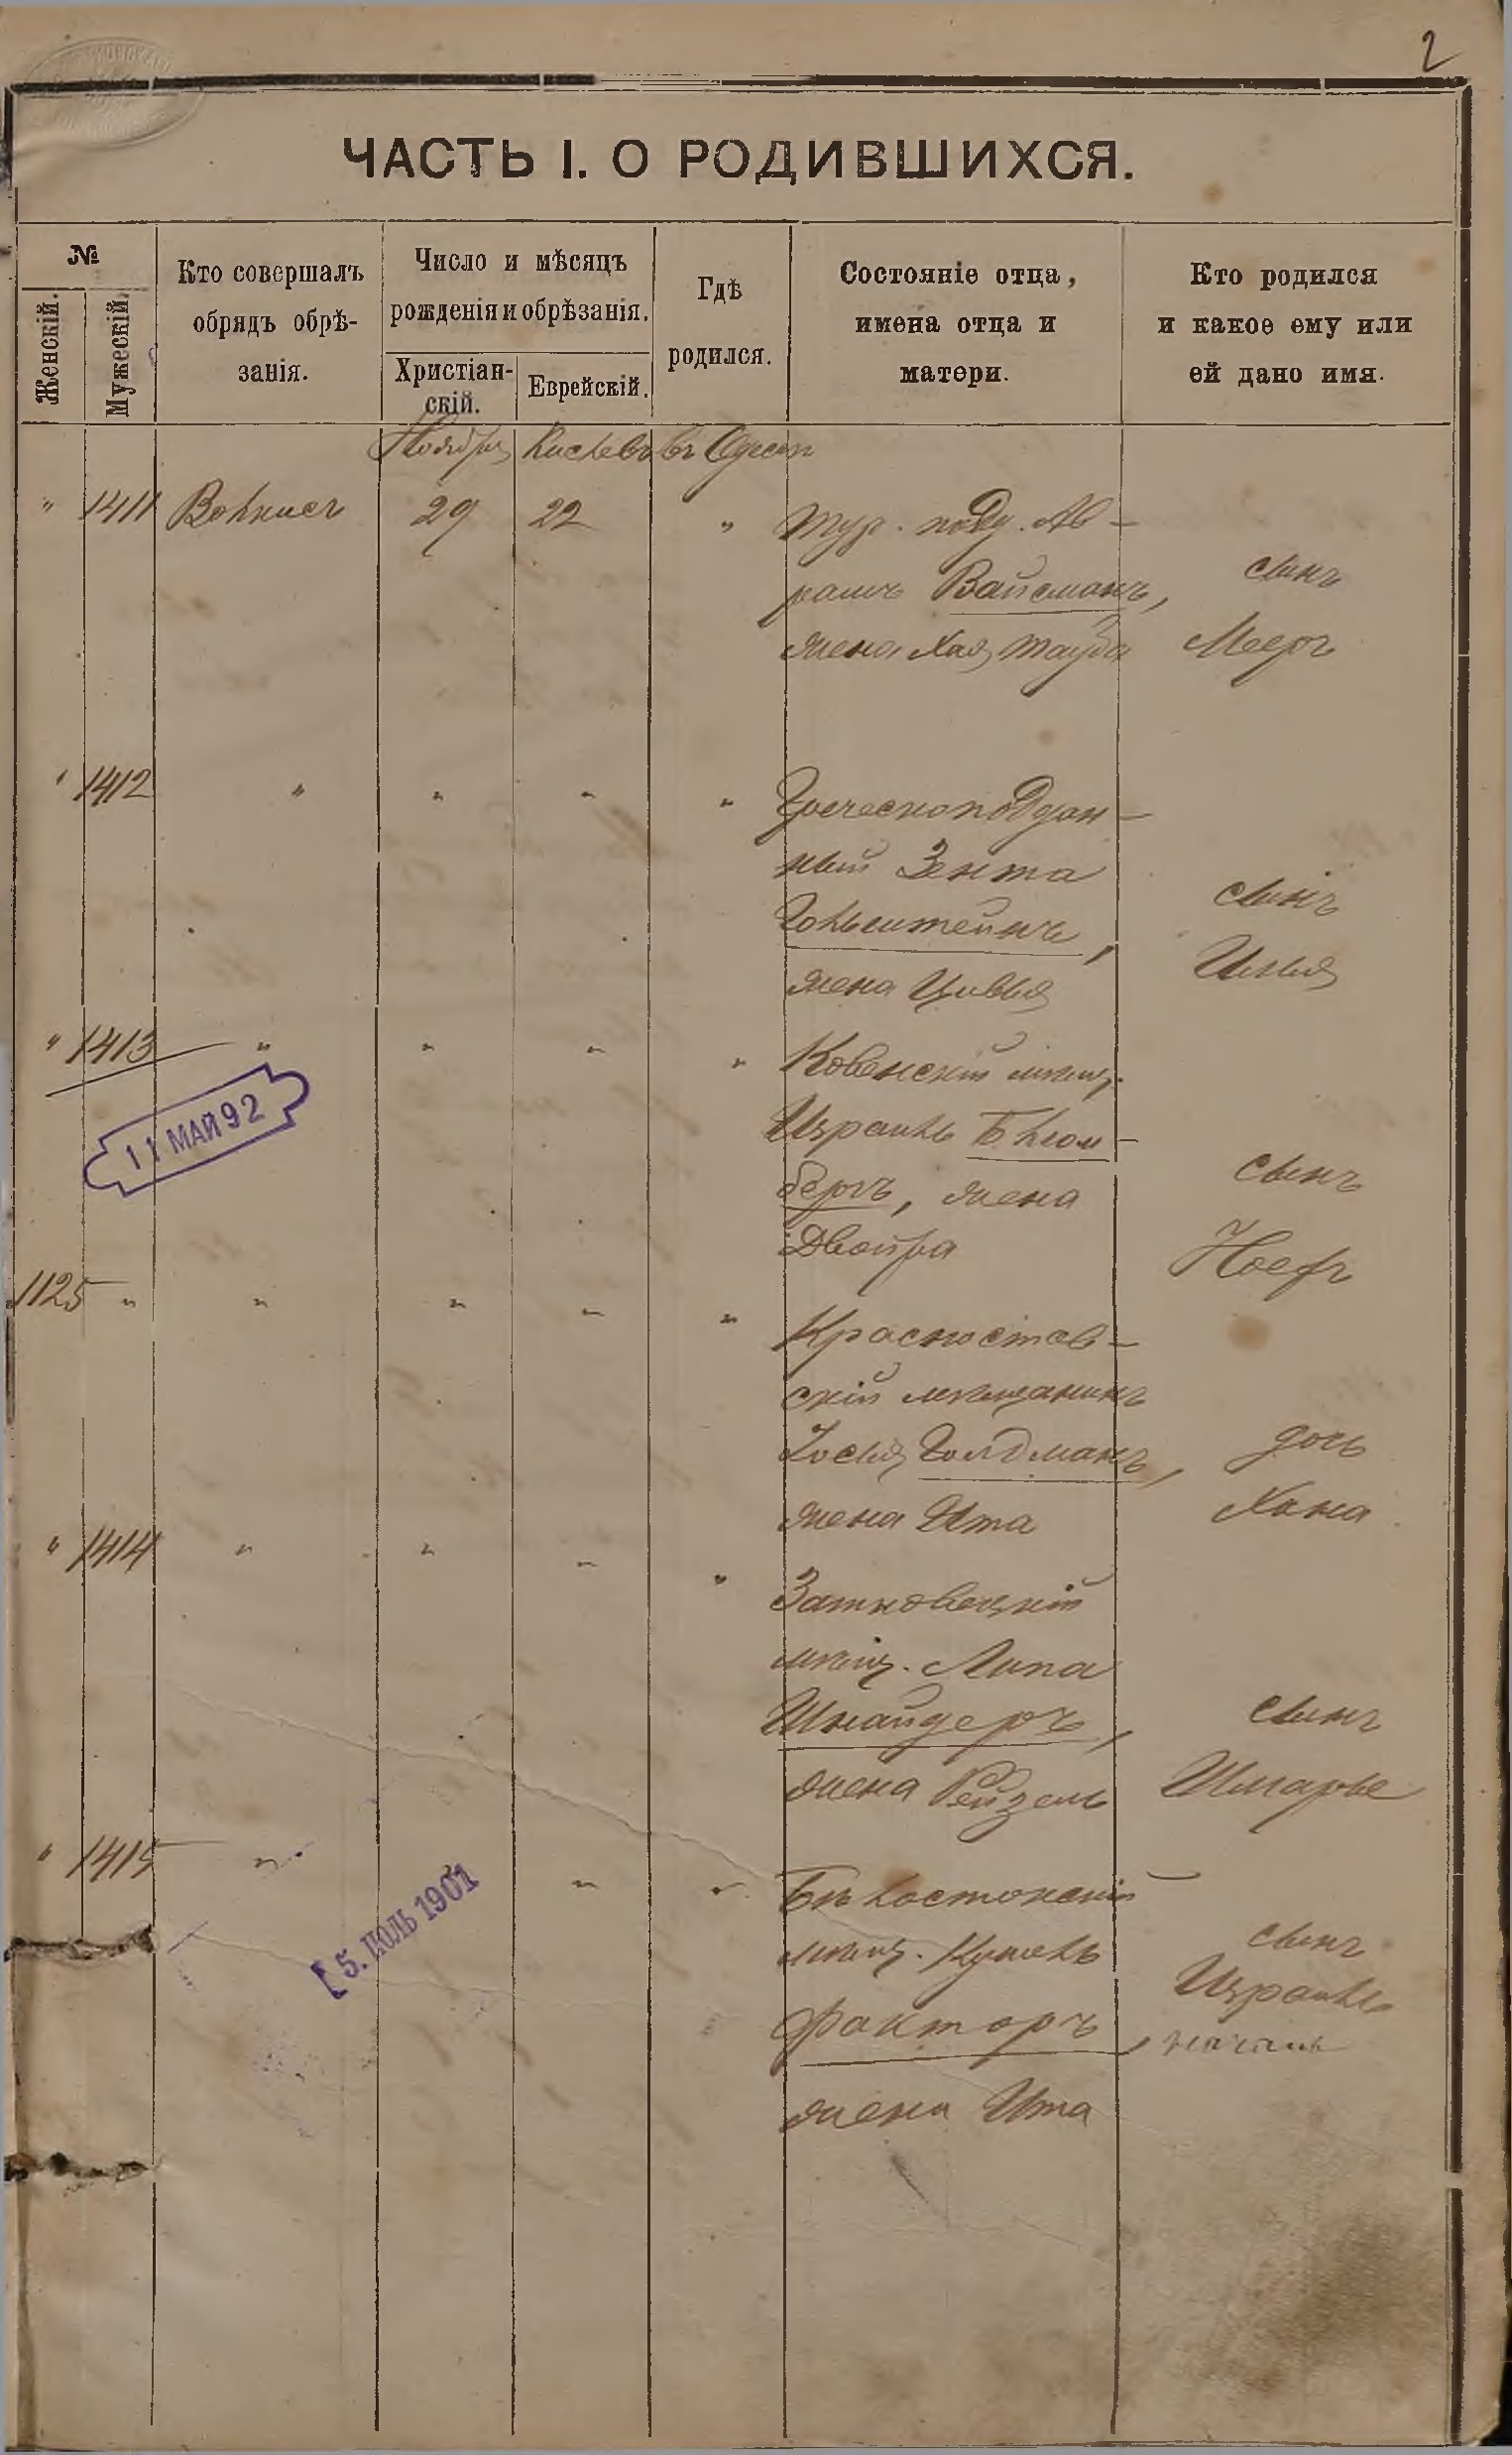 2
ЧАСТЬ I. О РОДИВШИХСЯ.
№
Женскій.
Мужескій.
Кто совершалъ
обрядъ обрѣ-
занія.
Число и мѣсяцъ
рожденія и обрѣзанія.
Христіан-
скій.
Еврейскій.
Гдѣ
родился.
Состояніе отца,
имена отца и
матери.
Кто родился
и какое ему или
ей дано имя.
Ноября Кислевъ въ Одессѣ
" 1411 29 22 " Тур. подд. Ав-
рамъ Вайсманъ,
жена Хая Тауба
сынъ
Мееръ
" 1412 " " " " Греческоподдан-
ный Зейта
Гольштейнъ,
жена Цивья
сынъ
Илья
" 1413 " " " " Ковенскій мѣщ.
Израиль Блюм-
бергъ, жена
Двойра
сынъ
Іосеф
11 МАЙ 92
1125 " " " " " Красностав-
скій мѣщанинъ
Іосья Голдманъ,
жена Ита
дочь
Хана
" 1414 " " " " Затковецкій
мѣщ. Липа
Шнайдеръ,
жена Рейзель
сынъ
Шмарье
" 1415 " " " Бѣлостокскій
мѣщ. Кушель
Факторъ,
жена Ита
сынъ
Израиль
5. ІЮЛЬ 1901